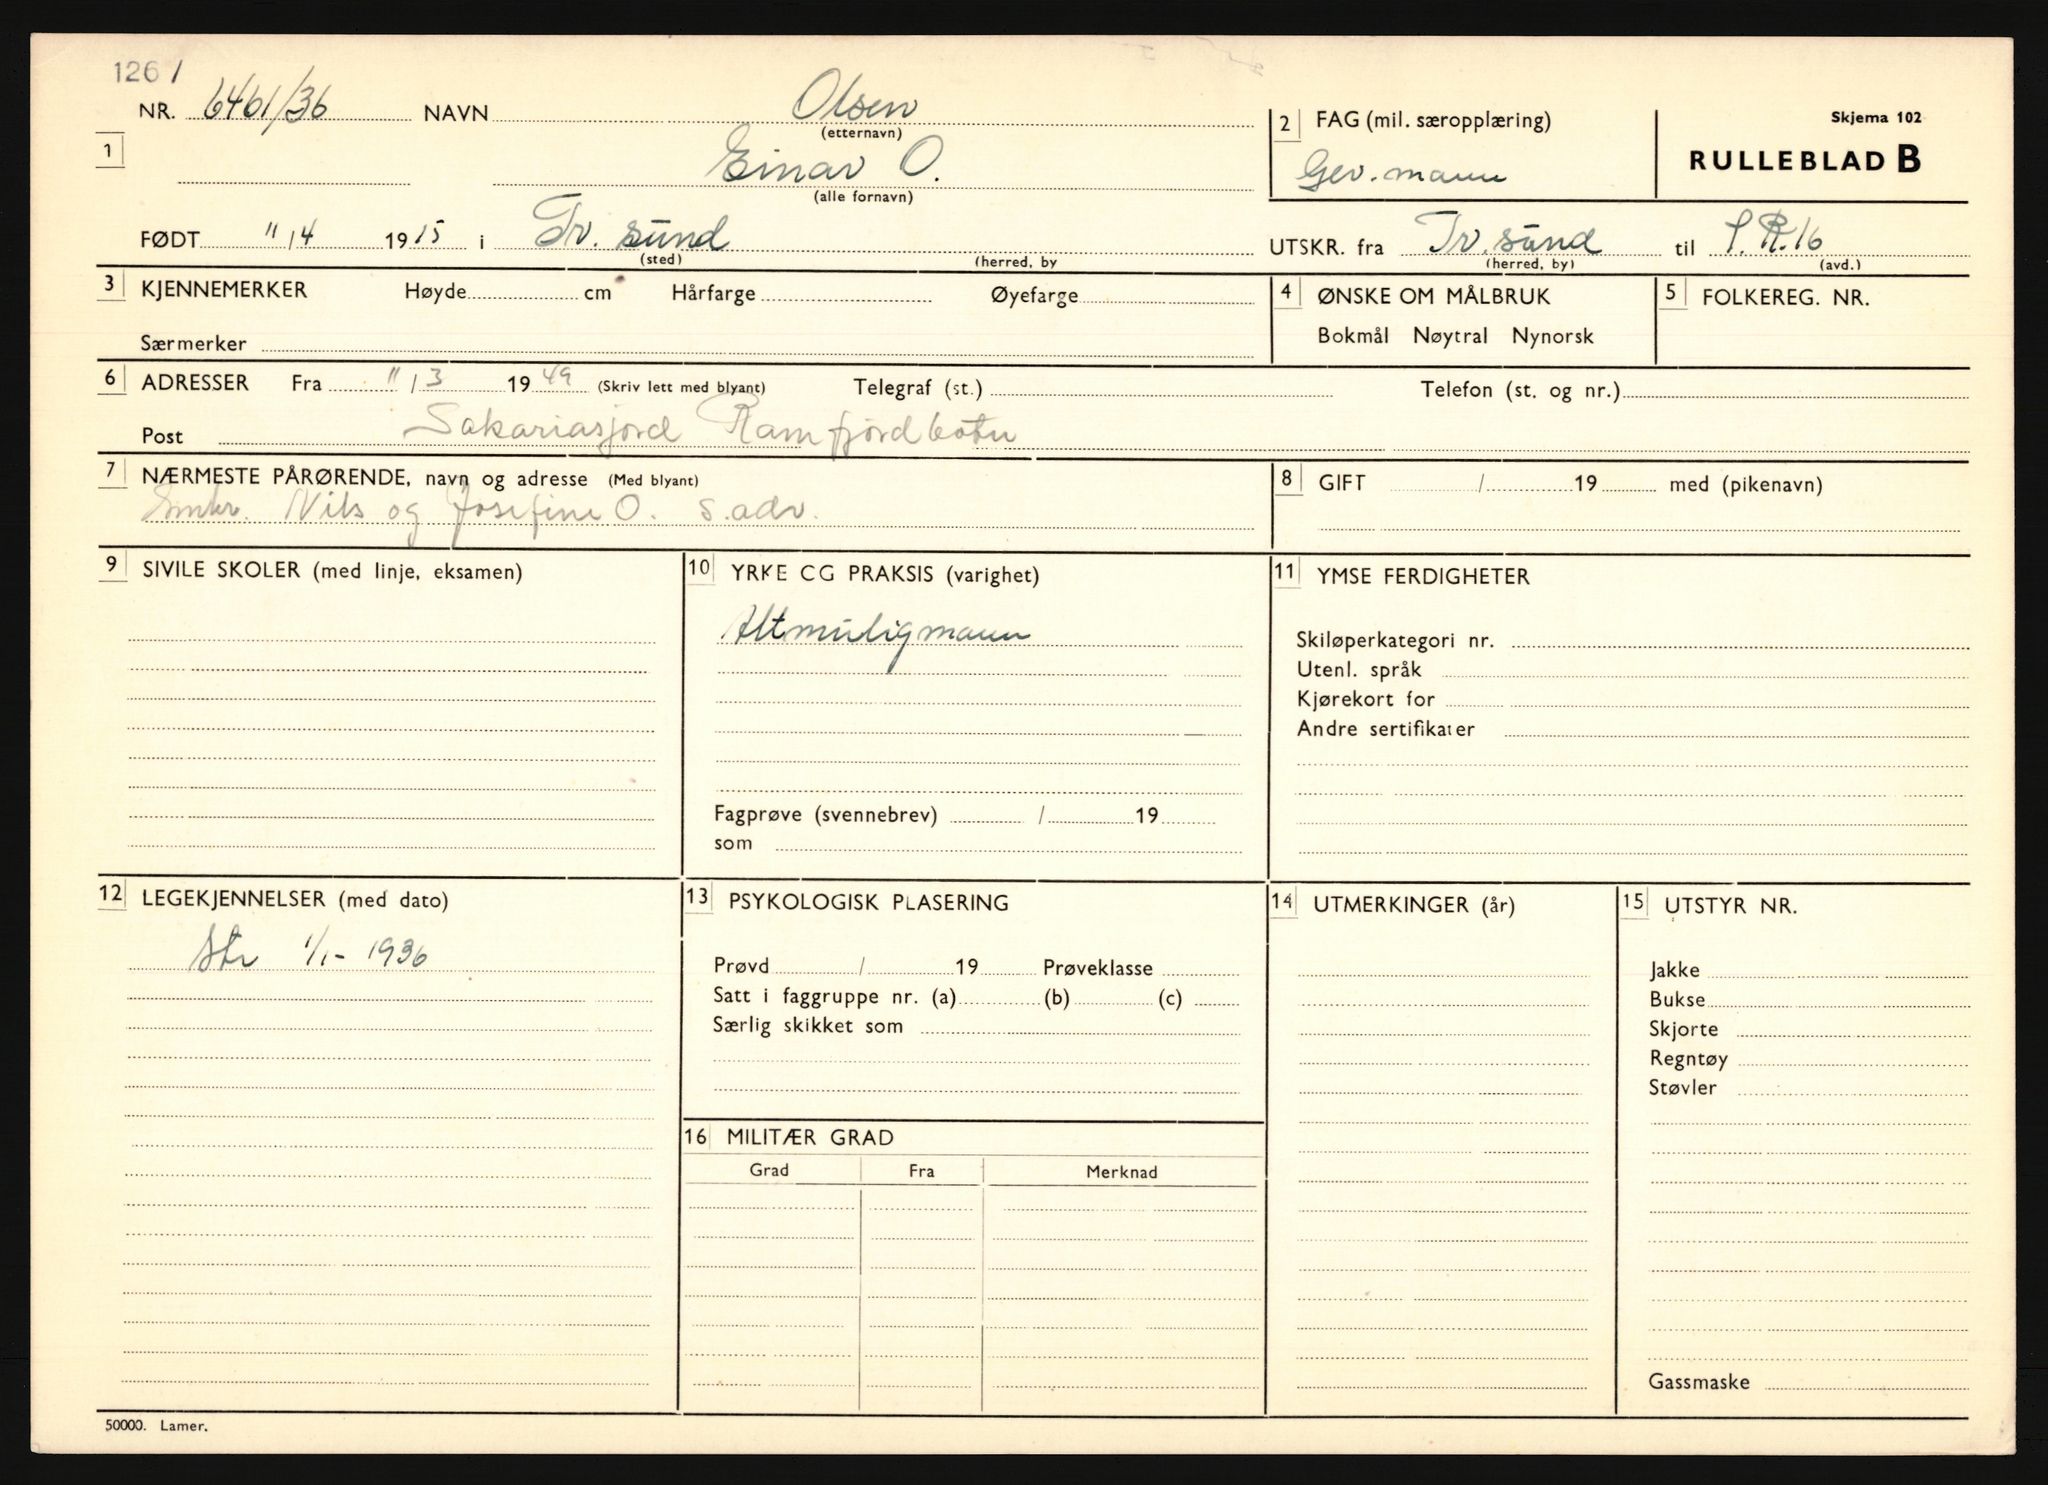 1261
NR. 6461/36 NAVN Olsen
(etternavn)
1 Einar O.
(alle fornavn)
2 FAG (mil. særopplæring)
Gev. mann
Skjema 102
RULLEBLAD B
FØDT 11/4 1915 i Tr. sund
(sted) (herred, by
UTSKR. fra Tr. sund til I.R.16
(herred, by) (avd.)
3 KJENNEMERKER Høyde cm Hårfarge Øyefarge
Særmerker
4 ØNSKE OM MÅLBRUK
Bokmål Nøytral Nynorsk
5 FOLKEREG. NR.
6 ADRESSER Fra 11/3 1949 (Skriv lett med blyant) Telegraf (st.) Telefon (st. og nr.)
Post Sakariasjord Ramfjordbotn
7 NÆRMESTE PÅRØRENDE, navn og adresse (Med blyant)
Nils og Josefine O. s. adr.
8 GIFT / 19 med (pikenavn)
9 SIVILE SKOLER (med linje, eksamen)
10 YRKE OG PRAKSIS (varighet)
Altmuligmann
Fagprøve (svennebrev) / 19
som
11 YMSE FERDIGHETER
Skiløperkategori nr.
Utenl. språk
Kjørekort for
Andre sertifikater
12 LEGEKJENNELSER (med dato)
Str 1/1-1936
13 PSYKOLOGISK PLASERING
Prøvd / 19 Prøveklasse
Satt i faggruppe nr. (a) (b) (c)
Særlig skikket som
14 UTMERKINGER (år)
15 UTSTYR NR.
Jakke
Bukse
Skjorte
Regntøy
Støvler
Gassmaske
16 MILITÆR GRAD
Grad Fra Merknad
50000. Lamer.